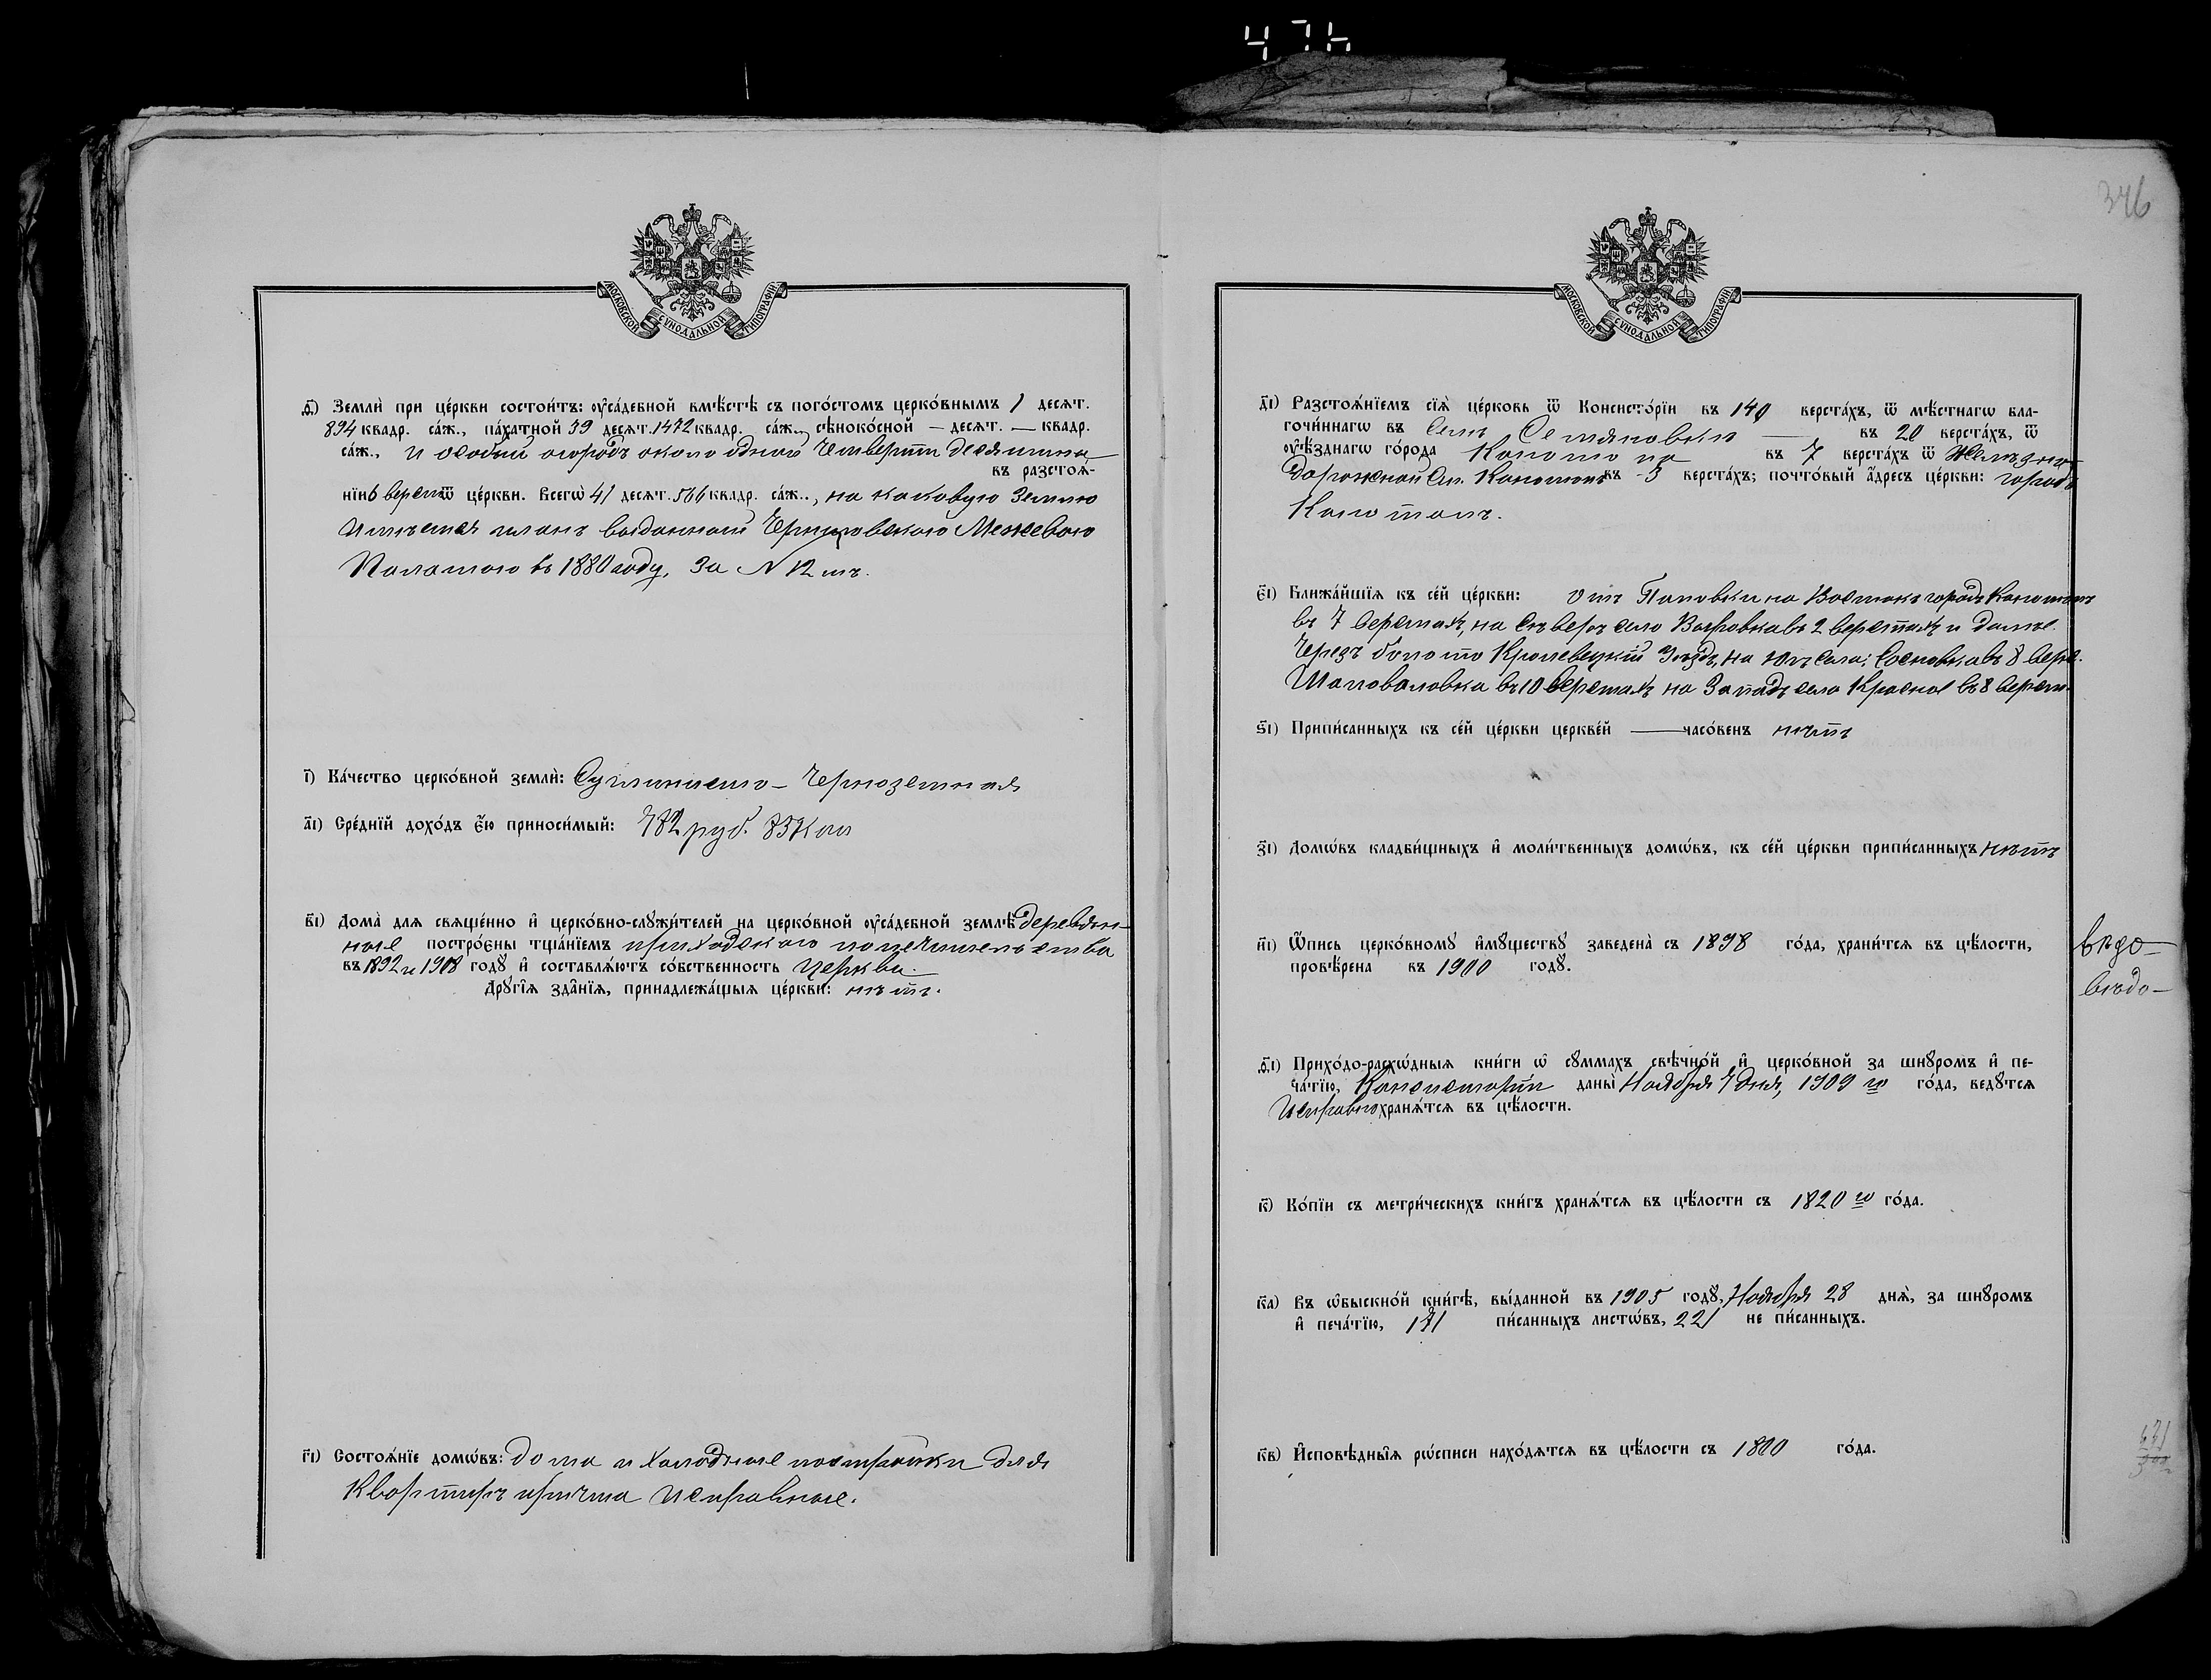 346
МОСКОВСКОЙ СѴНОДАЛЬНОЙ ТИПОГРАФІИ
ѳ҃і) Землѝ при це́ркви состои́тъ: ᲂу҆са́дебной вмѣ́стѣ съ пого́стомъ церко́внымъ 1 десѧт.
894 квадр. са́ж., па́хатной 39 десѧт. 1472 квадр. са́ж., сѣноко́сной — десѧт. — квадр.
са́ж., и особый огородъ около одной четверти десятины
въ разстоѧ́-
нїи 6 верст. ѿ це́ркви. Всегѡ̀ 41 десѧт. 566 квадр. са́ж., на каковую землю
имѣется планъ выданный Черниговскою Межевою
Палатою въ 1880 году, за N 12 мъ.
і҃) Ка́чество церко́вной землѝ: Суглинисто - Черноземная
а҃і) Сре́днїй дохо́дъ є҆́ю приноси́мый: 782 руб. 83 коп
в҃і) Дома̀ для свяще́нно и҆ церко́вно-слꙋжи́телей на церко́вной ᲂу҆са́дебной землѣ̀ деревян-
ные постро́єны тща́нїемъ приходскаго попечительства
въ 1892 и 1908 годꙋ̀ и҆ составлѧ́ютъ со́бственность Церкви.
Дрꙋгі̑ѧ зда̑нїѧ, принадлежа́щыѧ це́ркви: нѣтъ.
г҃і) Состоѧ́нїе домѡ́въ: дома и холодные постройки для
квартиръ причта исправные.
МОСКОВСКОЙ СѴНОДАЛЬНОЙ ТИПОГРАФІИ
д҃і) Разстоѧ́нїемъ сїѧ̀ це́рковь ѿ Консисто́рїи въ 140 верста́хъ, ѿ мѣ́стнагѡ бла-
гочи́ннагѡ въ селѣ Семяновки — въ 20 верста́хъ, ѿ
ᲂу҆ѣ́зднагѡ го́рода Конотопа въ 7 верста́хъ ѿ Желѣзно-
дорожной ст. Конотопъ въ 3 верста́хъ; почто́вый а҆́дресъ це́ркви: городъ
Конотопъ.
є҃і) Ближа́йшїѧ къ се́й це́ркви: отъ Поповки на Востокъ городъ Конотопъ
въ 7 верстахъ, на сѣверъ село Выровка въ 2 верстахъ и далѣе
Черезъ болото Кролевецкій Уѣздъ, на югъ села: Сосновка въ 8 верс.
Шаповаловка въ 10 верстахъ на Западъ село Красное въ 8 верстах
ѕ҃і) Припи́санныхъ къ се́й це́ркви церкве́й — часо́венъ нѣтъ
з҃і) Домѡ́въ кладби́щныхъ и҆ моли́твенныхъ домѡ́въ, къ се́й це́ркви припи́санныхъ нѣтъ
и҃і) Ѻ҆́пись церко́вномꙋ и҆мꙋ́ществꙋ заведена̀ съ 1898 го́да, храни́тсѧ въ цѣ́лости,
провѣ́рена въ 1900 годꙋ̀.
ѳ҃і) Прихо́до-расхѡ́дныѧ кни́ги ѡ҆ сꙋ́ммахъ свѣчно́й и҆ церко́вной за шнꙋро́мъ и҆ пе-
ча́тїю, Консисторіи даны̀ Ноября 7 дня, 1909 го го́да, ведꙋ́тсѧ
Исправно хранѧ́тсѧ въ цѣ́лости.
к҃) Ко́пїи съ метри́ческихъ кни́гъ хранѧ́тсѧ въ цѣ́лости съ 1820 го го́да.
к҃а) Въ ѡ҆быскно́й кни́гѣ, вы́данной въ 1905 годꙋ̀, Ноября 28 днѧ̀, за шнꙋро́мъ
и҆ печа́тїю, 171 пи́санныхъ листѡ́въ, 221 не пи́санныхъ.
к҃в) И҆сповѣ̑дныѧ рѡ́списи нахо́дѧтсѧ въ цѣ́лости съ 1800 го́да.